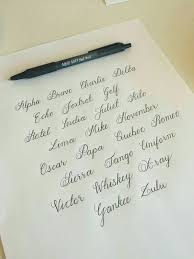 Alpha Bravo Charlie Delta
Echo Foxtrot Golf
Hotel India Juliet Kilo
Lima Mike November
Oscar Papa Quebec Romeo
Sierra Tango Uniform
Victor Whiskey Xray
Yankee Zulu